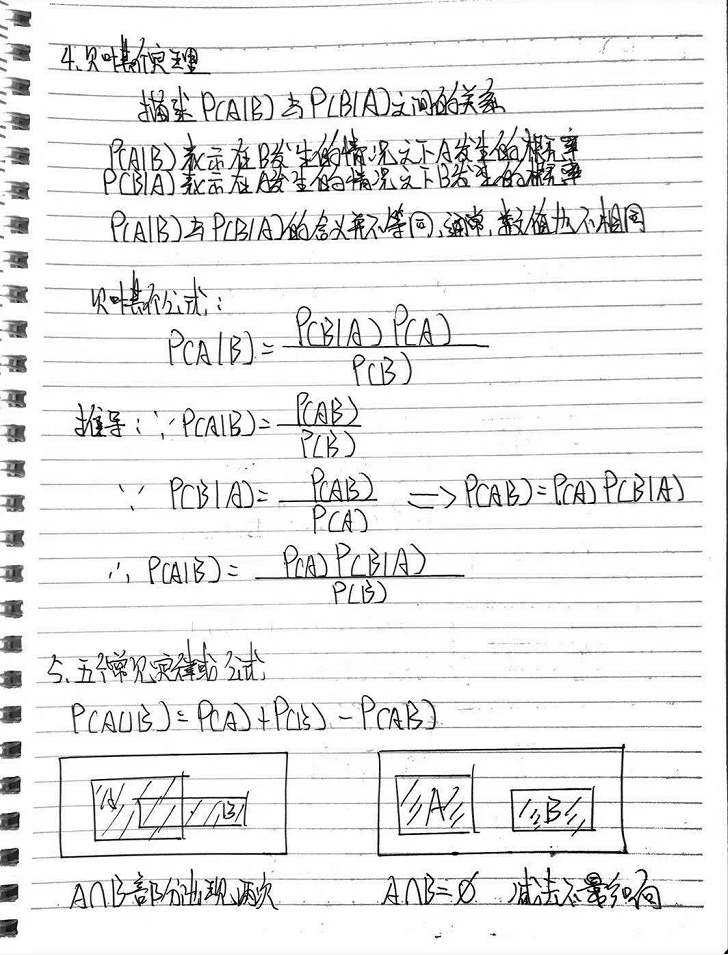 4.贝叶斯原理
描述P(A|B)与P(B|A)之间的关系
P(A|B)表示在B发生的情况之下A发生的概率
P(B|A)表示在A发生的情况之下B发生的概率
P(A|B)与P(B|A)的含义并不等同,通常,数值也不相同
贝叶斯公式:
P(A|B)=P(B|A)P(A)/P(B)
推导:∵P(A|B)=P(AB)/P(B)
∵P(B|A)=P(AB)/P(A) ⇒P(AB)=P(A)P(B|A)
∴P(A|B)=P(A)P(B|A)/P(B)
5.五个常见定律或公式
P(A∪B)=P(A)+P(B)-P(AB)
A B A B
A∩B部分出现两次 A∩B=∅ 减法不影响